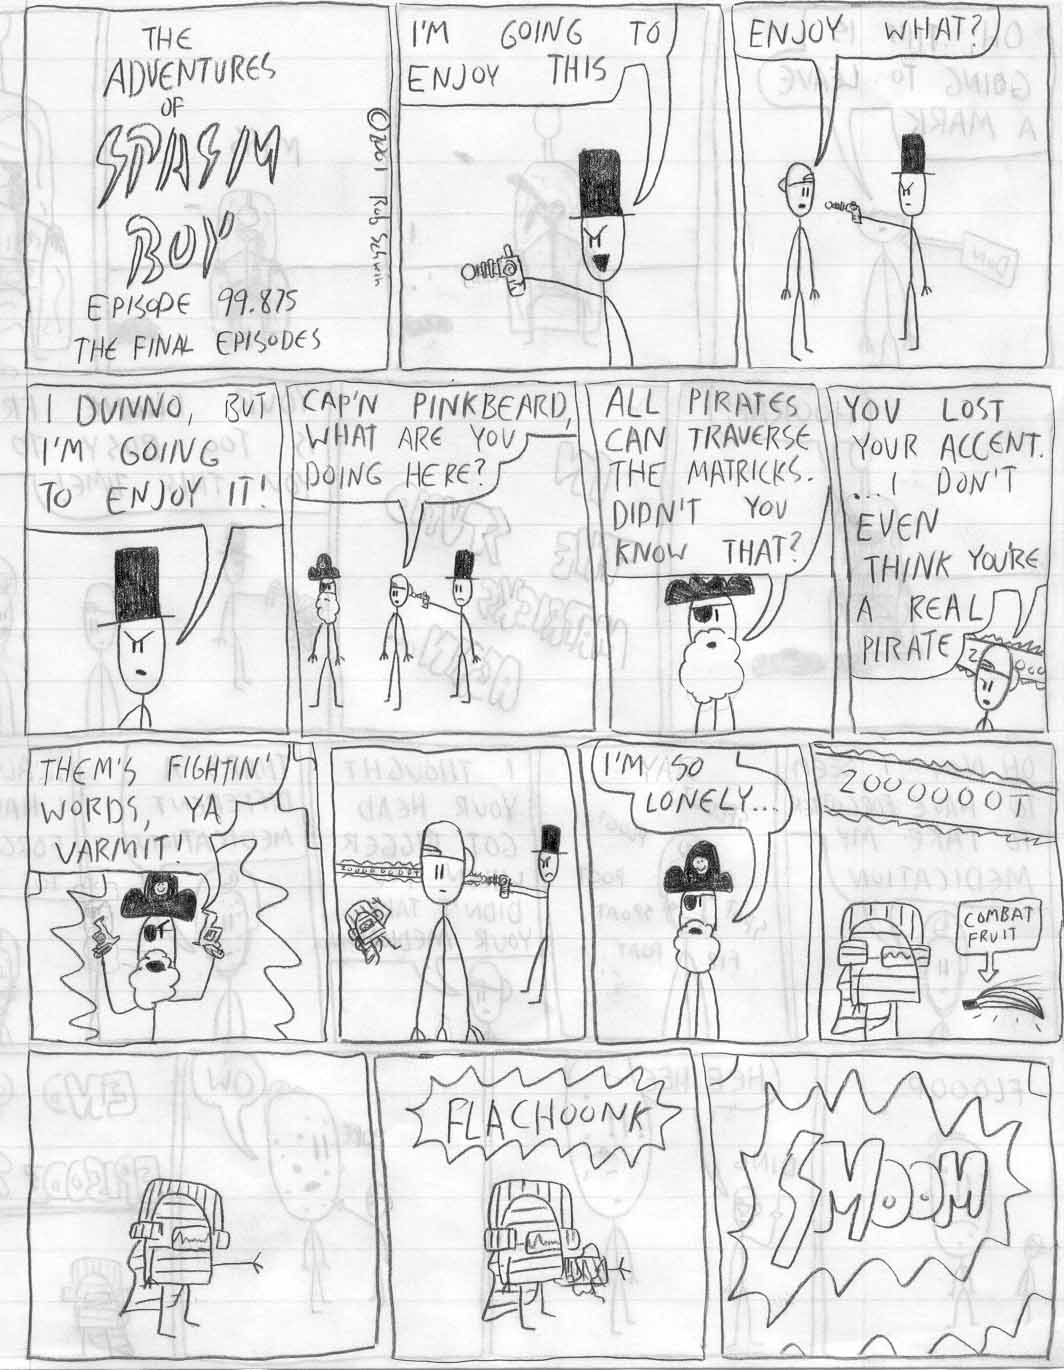 THE
ADVENTURES
OF
SPASIM
BOY
EPISODE 99.875
THE FINAL EPISODES
© 2001 Rob Schwin
I'M GOING TO
ENJOY THIS
ENJOY WHAT?
I DUNNO, BUT
I'M GOING
TO ENJOY IT!
CAP'N PINKBEARD,
WHAT ARE YOU
DOING HERE?
ALL PIRATES
CAN TRAVERSE
THE MATRICKS.
DIDN'T YOU
KNOW THAT?
YOU LOST
YOUR ACCENT.
...I DON'T
EVEN
THINK YOU'RE
A REAL
PIRATE
THEM'S FIGHTIN'
WORDS, YA
VARMIT!
I'M SO
LONELY...
2000000T
COMBAT
FRUIT
FLACHOONK
SMOOM